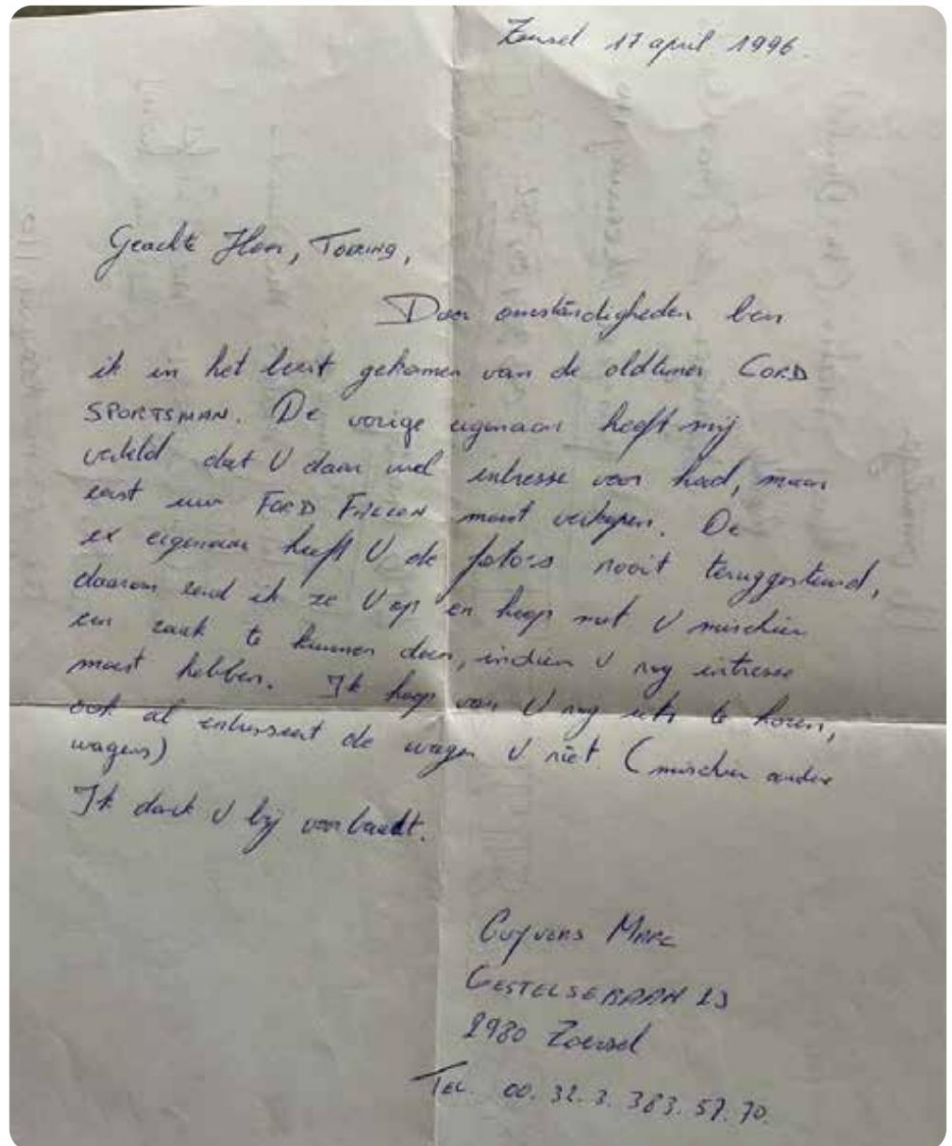 Zoersel 17 april 1996.
Geachte Heer, Toering,
Door omstandigheden ben
ik in het bezit gekomen van de oldtimer CORD
SPORTSMAN. De vorige eigenaar heeft mij
verteld dat U daar wel intresse voor had, maar
eerst uw FORD moest verkopen. De
ex eigenaar heeft U de foto's nooit teruggestuurd,
daarom zend ik ze U op en hoop met U mischien
een zaak te kunnen doen, indien U nog intresse
moest hebben. Ik hoop van U nog iets te horen,
ook al intresseert de wagen U niet. (mischien andere
wagens)
Ik dank U bij voorbaadt.
Cuyvers Marc
GESTELSEBAAN 23
2980 Zoersel
TEL. 00. 32. 3. 383. 57. 70.